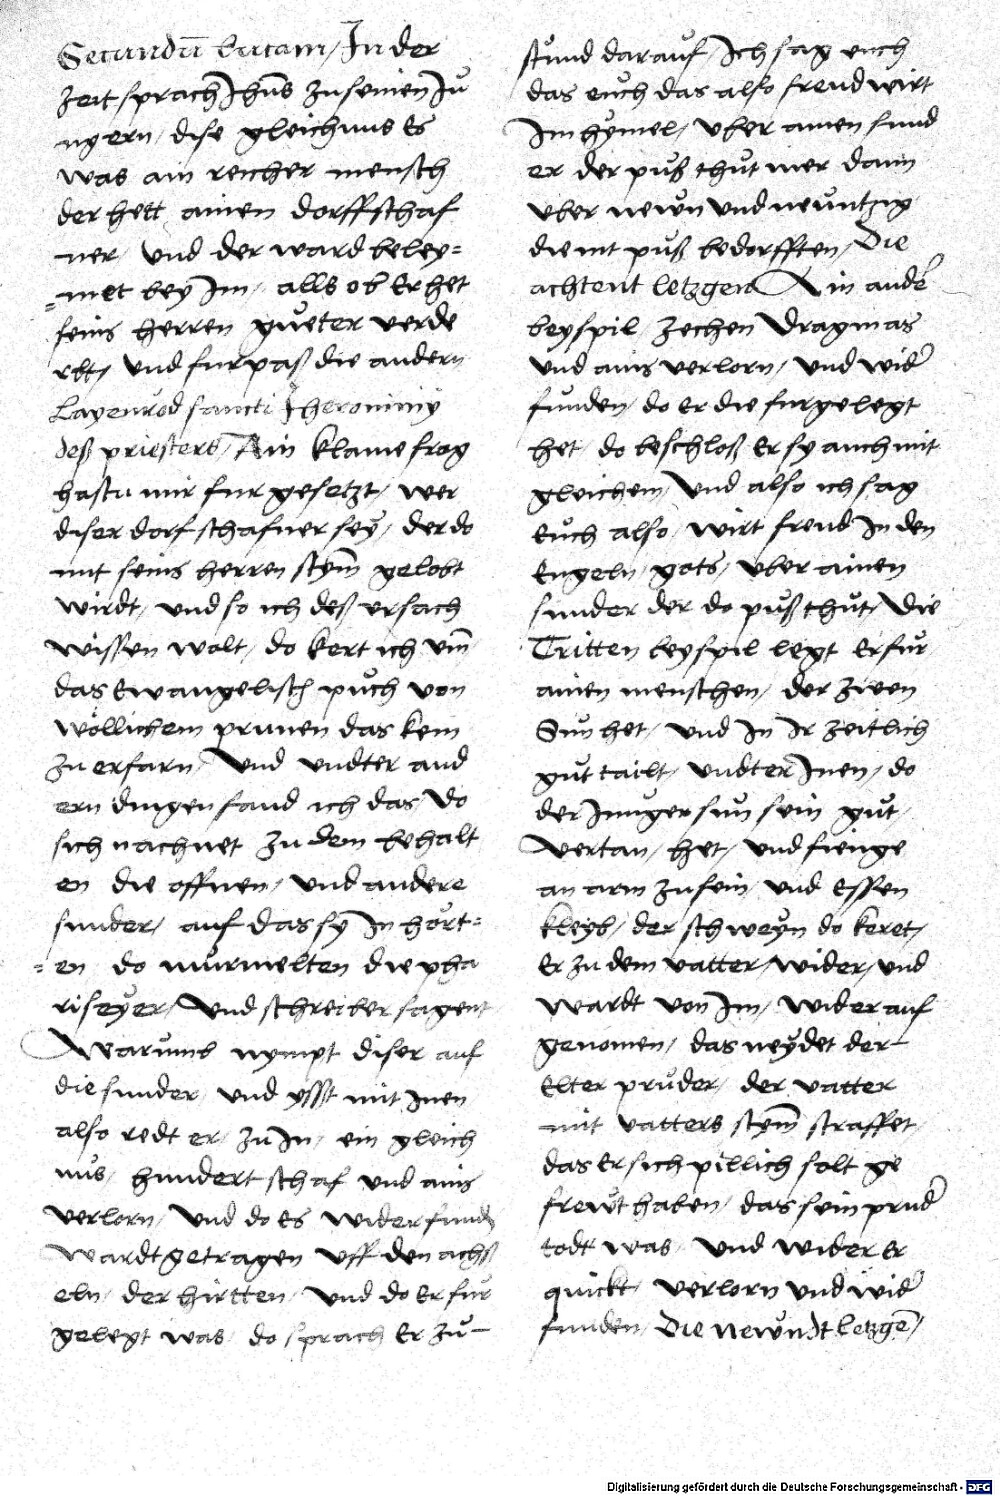 Secundū lucam / In der
zeit sprach Ihūs zu seinen Ju
ngern / dise gleichnus Es
was ain reicher mensch
der hett ainen dorffschaf
ner / und der ward beley=
=met bey Im / alls ob Er het
seins herren gueter verde
rbt / und furpaß die andern
Layenrod sancti Jheronimy
deß priesters / Ain klaine frag
hastu mir fur gesetzt / wer
diser dorfschafner sey / der do
mit seins herren stym̄ gelobt
wirdt / und so ich deß ursach
wissen wolt / do kert ich um̄
das Ewangelisch puch von
wöllichem prunen das kem
zu erfarn / Und undter and
ern dingen fand ich das / Do
sich nachnet zu dem behalt
en die offnen / und andere
sunder / auf das sy In hort=
=en do murmelten die pha
riseyer / Und schreiber sagent
Warumb nympt diser auf
die sunder und ysst mit Inen
also redt er / zu In / ein gleich
nus / hundert schaf und ains
verlorn / Und do Es wider fund
wardt getragen uff den achß
eln / der hirtten / und do Er fur
gelegt was / do sprach Er zu–
stund darauf / Ich sag euch
das euch das also freud wirt
Im hymel / uber ainen sund
er der puß thut mer dann
uber newn und neuntzig
die nit puß bedorfften / Die
achtent letzgen Ain ander
beyspil / zechen Dragmas
und ains verlorn / und wider
funden / do er die furgelegt
het / do beschloß Er sy auch mit
gleichem / Und also ich sag
Euch also / wirt freud In den
Engeln / gots / uber ainen
sunder der do puß thut / Die
Tritten beyspil legt Er fur
ainen menschen / der zwen
Sun het / und In Ir zeitlich
gut tailt / undter Inen / do
der Junger sun sein gut /
vertan / het / und fienge
an arm zu sein / und Essen
kleyb / der schweyn do keret /
Er zu dem vatter / wider / und
wardt von Im / wider auf
genomen / das neydet der–
Elter pruder / der vatter
mit vatters stym̄ straffet /
das Er sich pillich solt ge
frewt haben / das sein prud
todt was / und wider Er
quickt / verlorn und wid
funden / Die newndt letzgē /
Digitalisierung gefördert durch die Deutsche Forschungsgemeinschaft - DFG